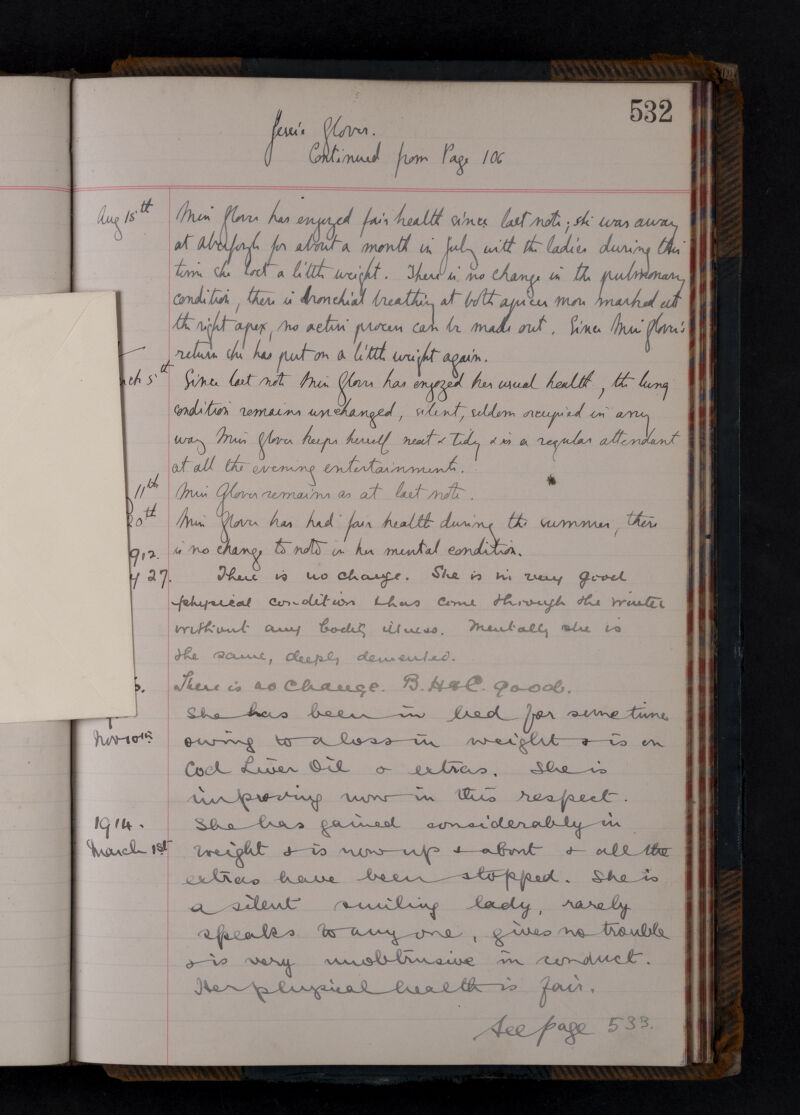 532
Jessie Glover.
Continued from Page 106
Aug 15th Miss Glover has enjoyed fair health since last note; she was away
at for about a month in July with the ladies during this
time she lost a little weight. There is no change in the pulmonary
condition, there is bronchial breathing at both apices more marked at
the right apex, no active process can be made out. Since Miss Glover's
return she has put on a little weight again.
ch 5th Since last note Miss Glover has enjoyed her usual health, the lung
condition remains unchanged, silent, seldom occupied in any
way Miss Glover keeps herself neat & tidy & is a regular attendant
at all the evening entertainments.
11th Miss Glover remains as at last note.
20th Miss Glover has had fair health during the summer, there
is no change to note in her mental condition.
912.
y 27. There is no change. She is in very good
physical condition & has come through the winter
without any bodily illness. Mentally she is
the same, deeply demented.
There is no change. B.H&C. good.
She has been in bed for some time
Nov 10th owing to a loss in weight & is on
Cod Liver Oil & extras. She is
improving now in this respect.
1914. She has gained considerably in
March 1st weight & is now up & about & all the
extras have been stopped. She is
a silent smiling lady, rarely
speaks to any one, gives no trouble
& is very unobtrusive in conduct.
Her physical health is fair.
See page 533.